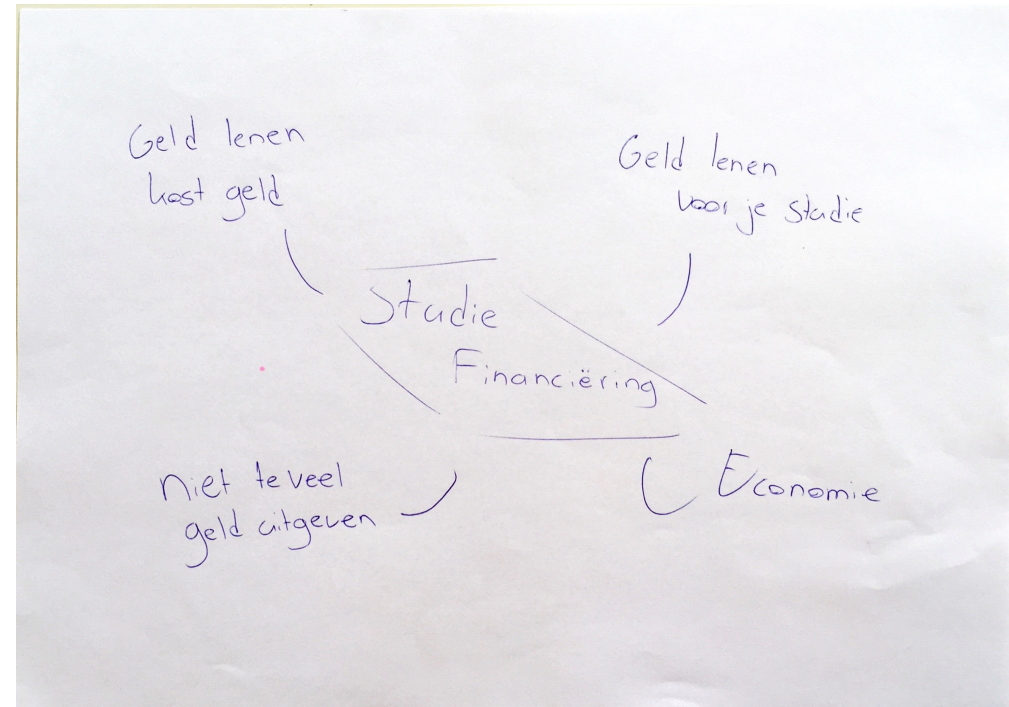 Geld lenen
kost geld
Geld lenen
voor je studie
Studie
Financiëring
niet te veel
geld uitgeven
Economie